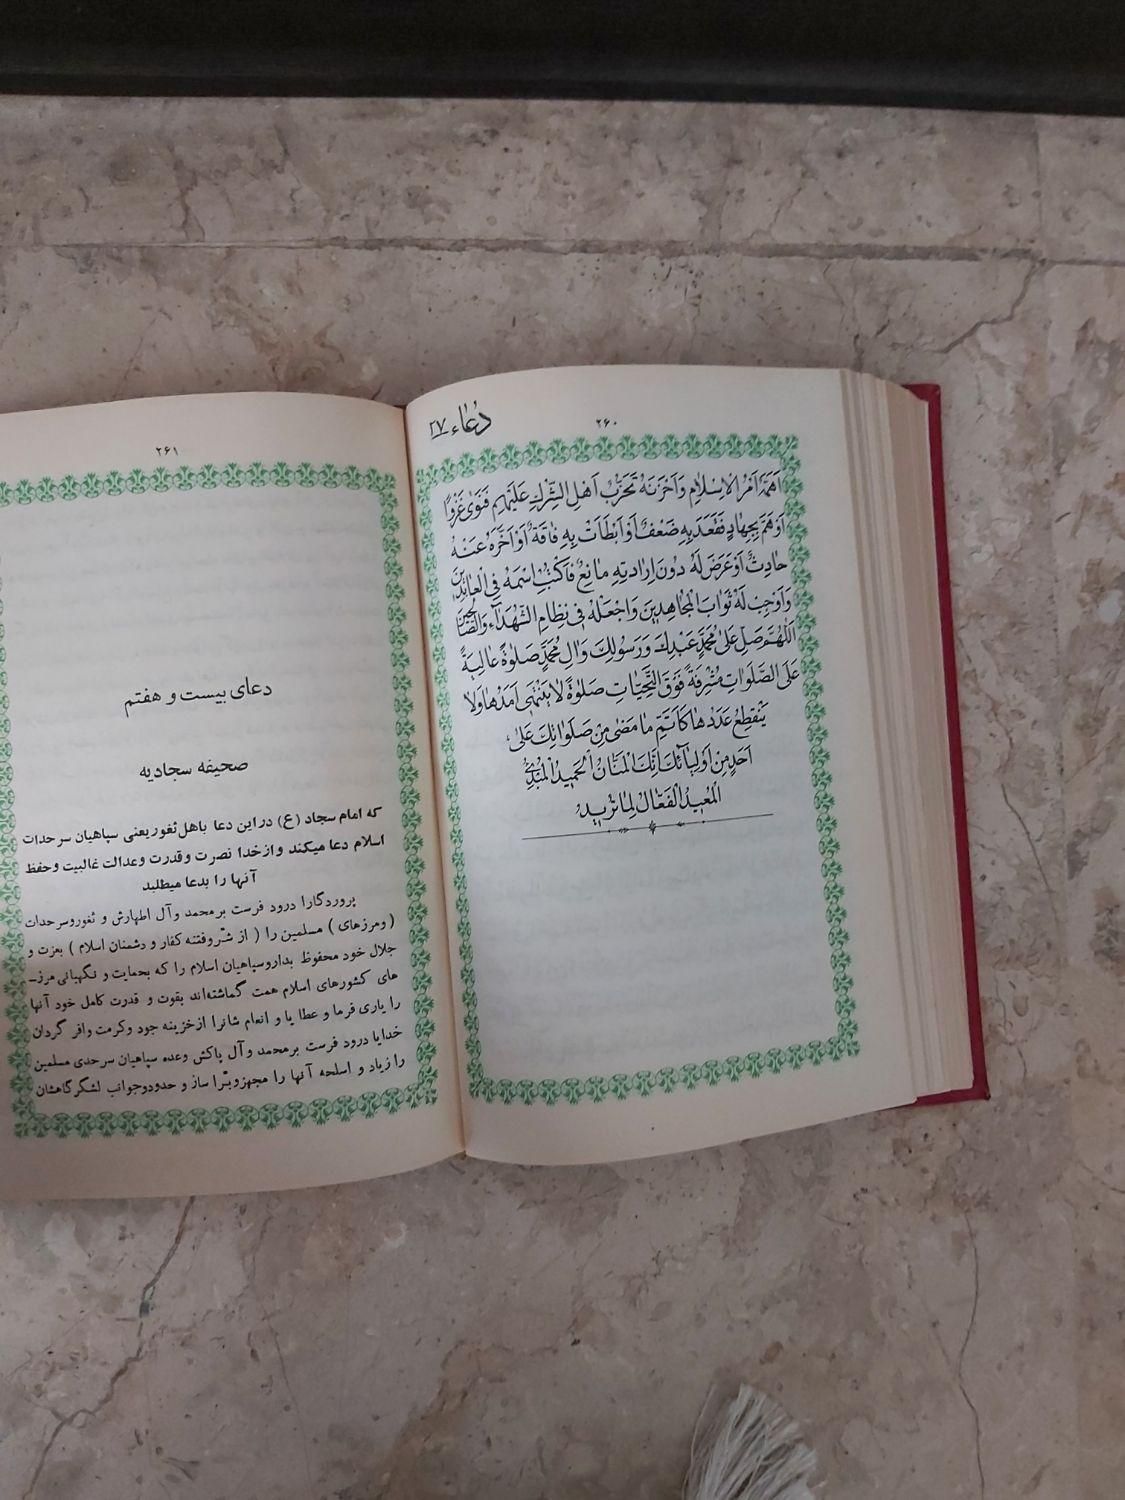 ۲۶۰
دُعاء ۲۷
اَهَمَّهُ اَمْرُ الْاِسْلامِ وَاَحْزَنَهُ تَحَزُّبُ اَهْلِ الشِّرْكِ عَلَيْهِمْ فَنَوٰى غَزْوًا
اَوْهَمَّ بِجِهادٍ فَقَعَدَ بِهِ ضَعْفٌ اَوْ اَبْطَاَتْ بِهِ فاقَةٌ اَوْ اَخَّرَهُ عَنْهُ
حادِثٌ اَوْ عَرَضَ لَهُ دُونَ اِرادَتِهِ مانِعٌ فَاكْتُبِ اسْمَهُ فِى الْعابِدينَ
وَاَوْجِبْ لَهُ ثَوابَ الْمُجاهِدينَ وَاجْعَلْهُ فى نِظامِ الشُّهَدآءِ وَالصّالِحينَ
اَللّٰهُمَّ صَلِّ عَلىٰ مُحَمَّدٍ عَبْدِكَ وَرَسُولِكَ وَالِ مُحَمَّدٍ صَلوٰةً عالِيَةً
عَلَى الصَّلَواتِ مُشْرِفَةً فَوْقَ التَّحِيّاتِ صَلوٰةً لايَنْتَهى اَمَدُها وَلا
يَنْقَطِعُ عَدَدُها كَاَتَمِّ ما مَضىٰ مِنْ صَلَواتِكَ عَلىٰ
اَحَدٍ مِنْ اَوْلِيآئِكَ اِنَّكَ الْمَنّانُ الْحَميدُ الْمُبْدِئُ
الْمُعيدُ الْفَعّالُ لِما تُريدُ
۲۶۱
دعای بیست و هفتم
صحیفه سجادیه
که امام سجاد (ع) دراین دعا باهل ثغوریعنی سپاهیان سرحدات
اسلام دعا میکند وازخدا نصرت وقدرت وعدالت غالبیت وحفظ
آنها را بدعا میطلبد
پروردگارا درود فرست برمحمد وآل اطهارش و ثغوروسرحدات
(ومرزهای) مسلمین را (از شرّوفتنه کفار و دشمنان اسلام) بعزت و
جلال خود محفوظ بداروسپاهیان اسلام را که بحمایت و نگهبانی مرز-
های کشورهای اسلام همت گماشته‌اند بقوت و قدرت کامل خود آنها
را یاری فرما و عطا یا و انعام شانرا ازخزینه جود وکرمت وافر گردان
خدایا درود فرست برمحمد وآل پاکش وعده سپاهیان سرحدی مسلمین
را زیاد و اسلحه آنها را مجهزوبرّا ساز و حدودوجوانب لشگرگاهشان